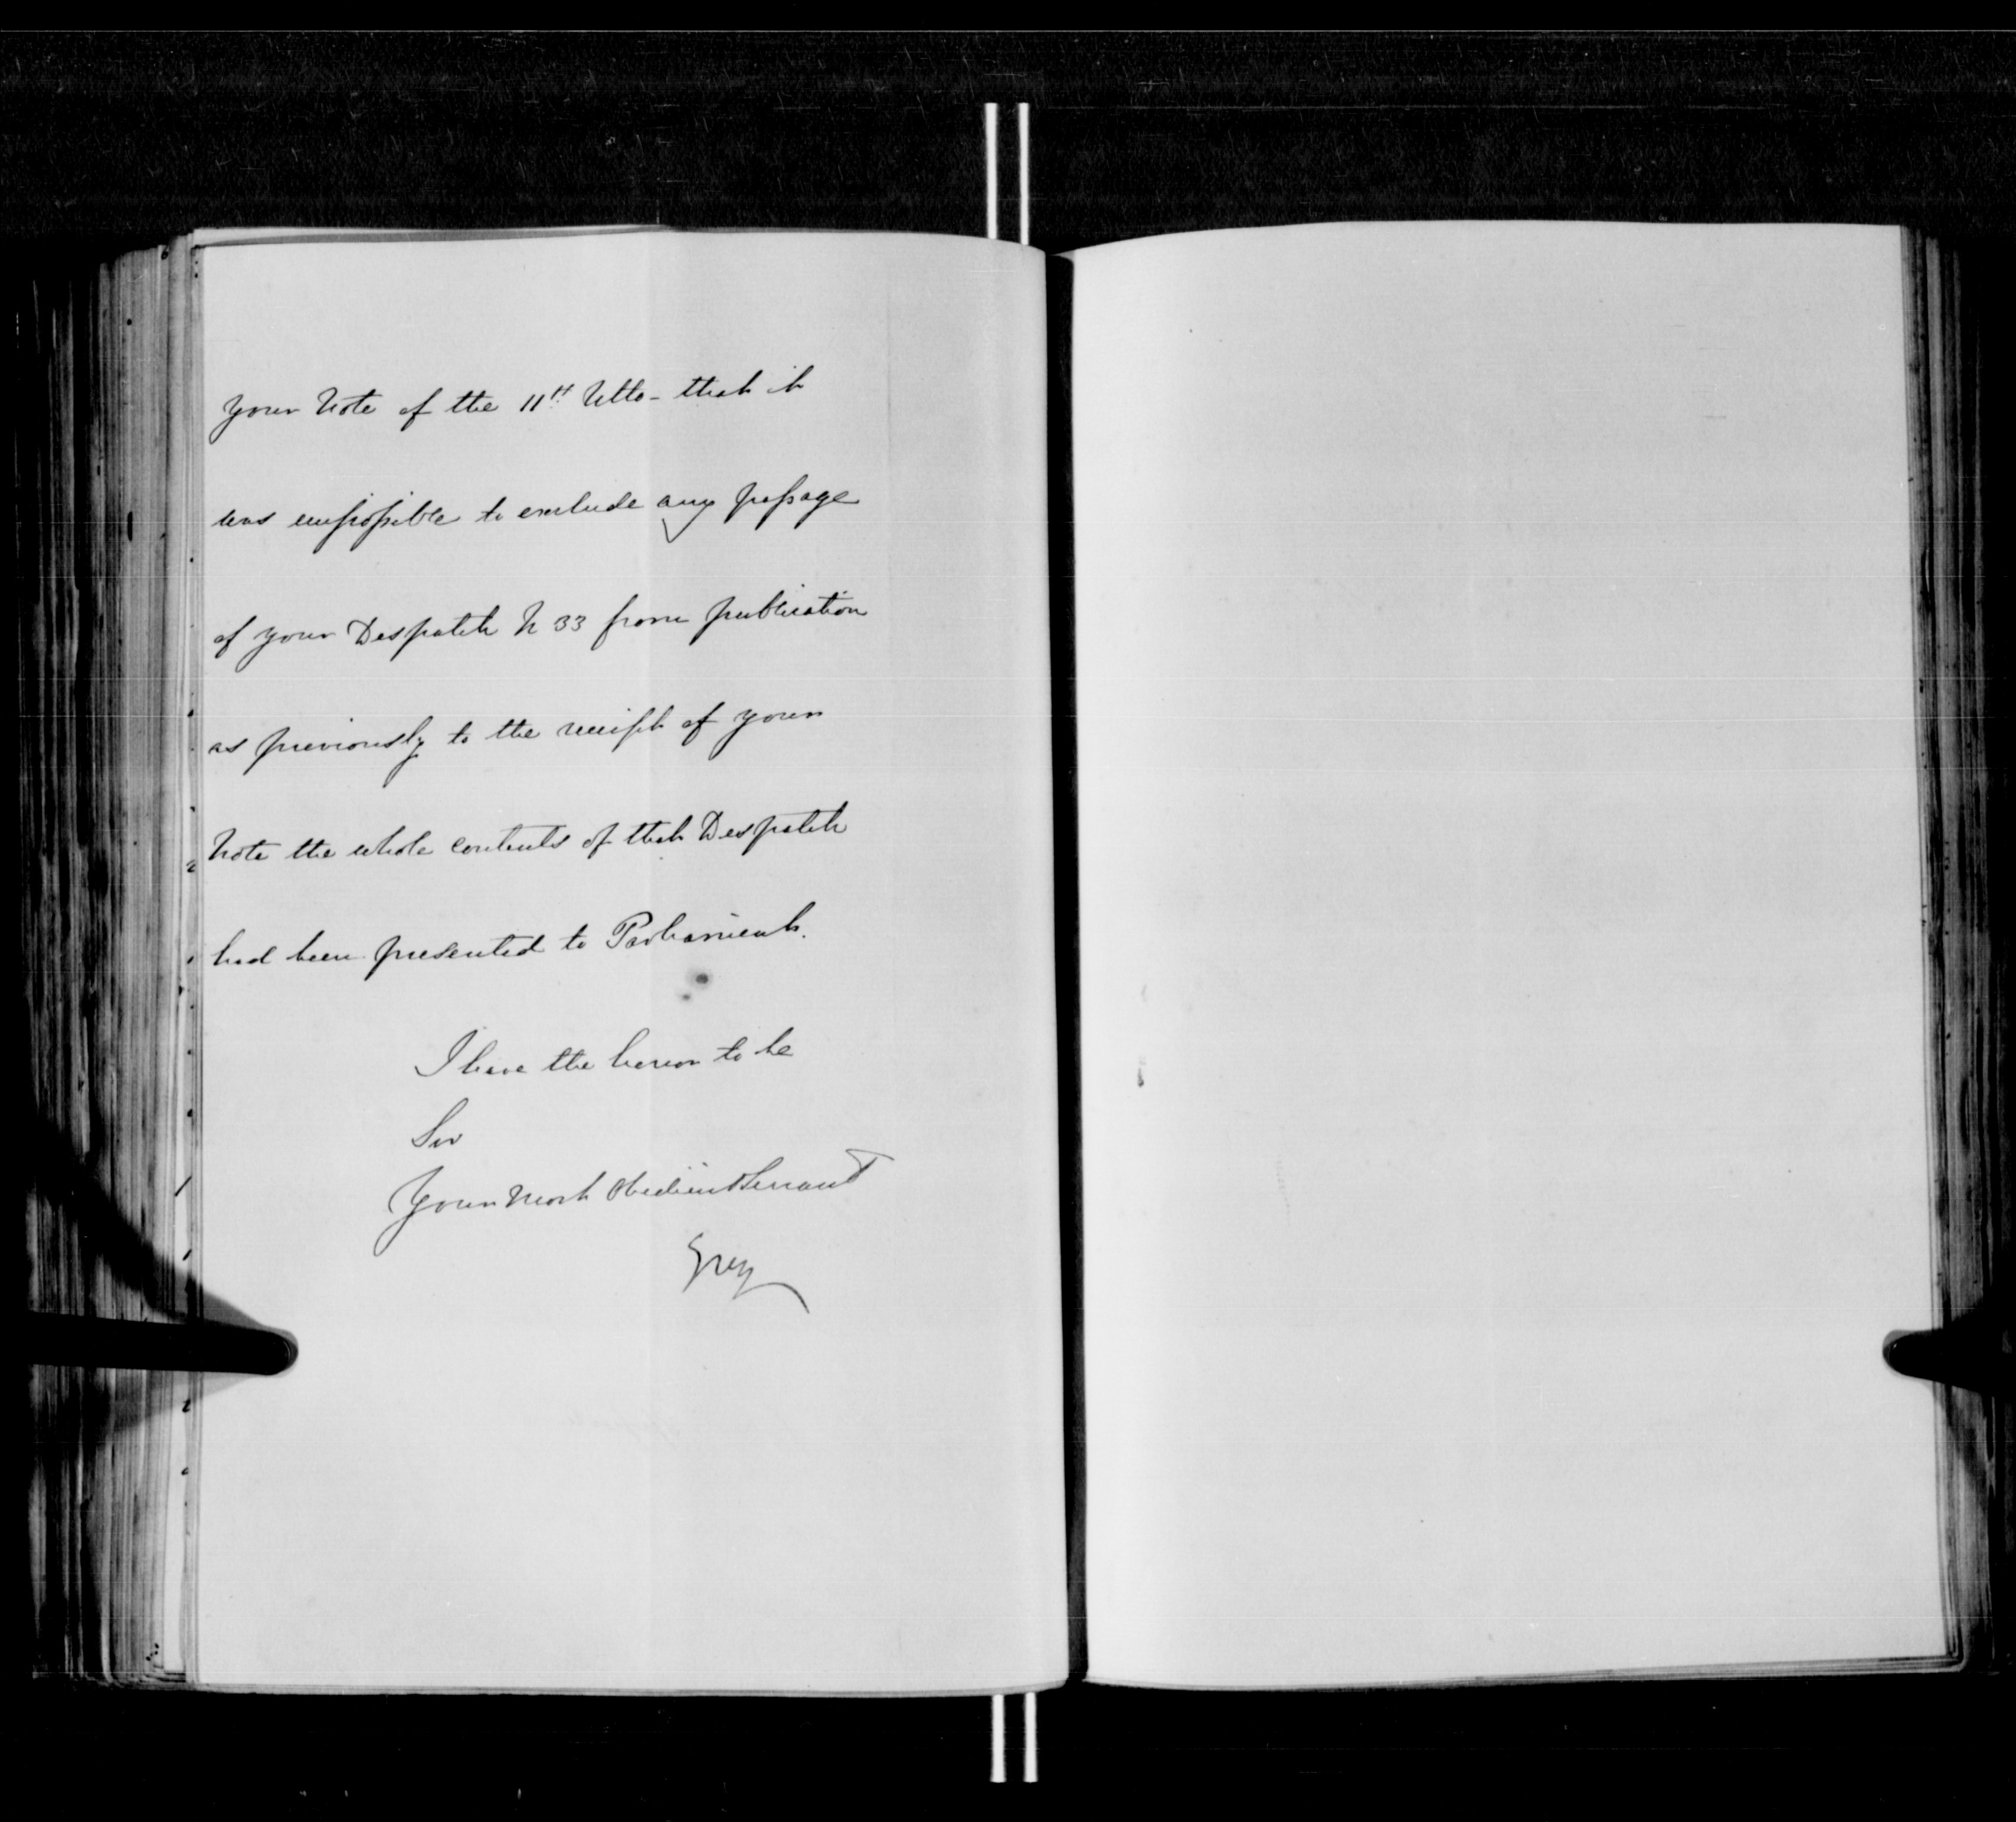 your Note of the 11th Ulto - that it
was impossible to exclude any passage
of your Despatch N 33 from publication
as previously to the receipt of your
Note the whole contents of that Despatch
had been presented to Parliament.
I have the honor to be
Sir
Your most Obedient Servant
Grey